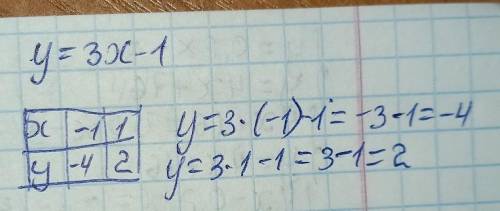 y = 3x - 1
x | -1 | 1
y | -4 | 2
y = 3 · (-1) - 1 = -3 - 1 = -4
y = 3 · 1 - 1 = 3 - 1 = 2